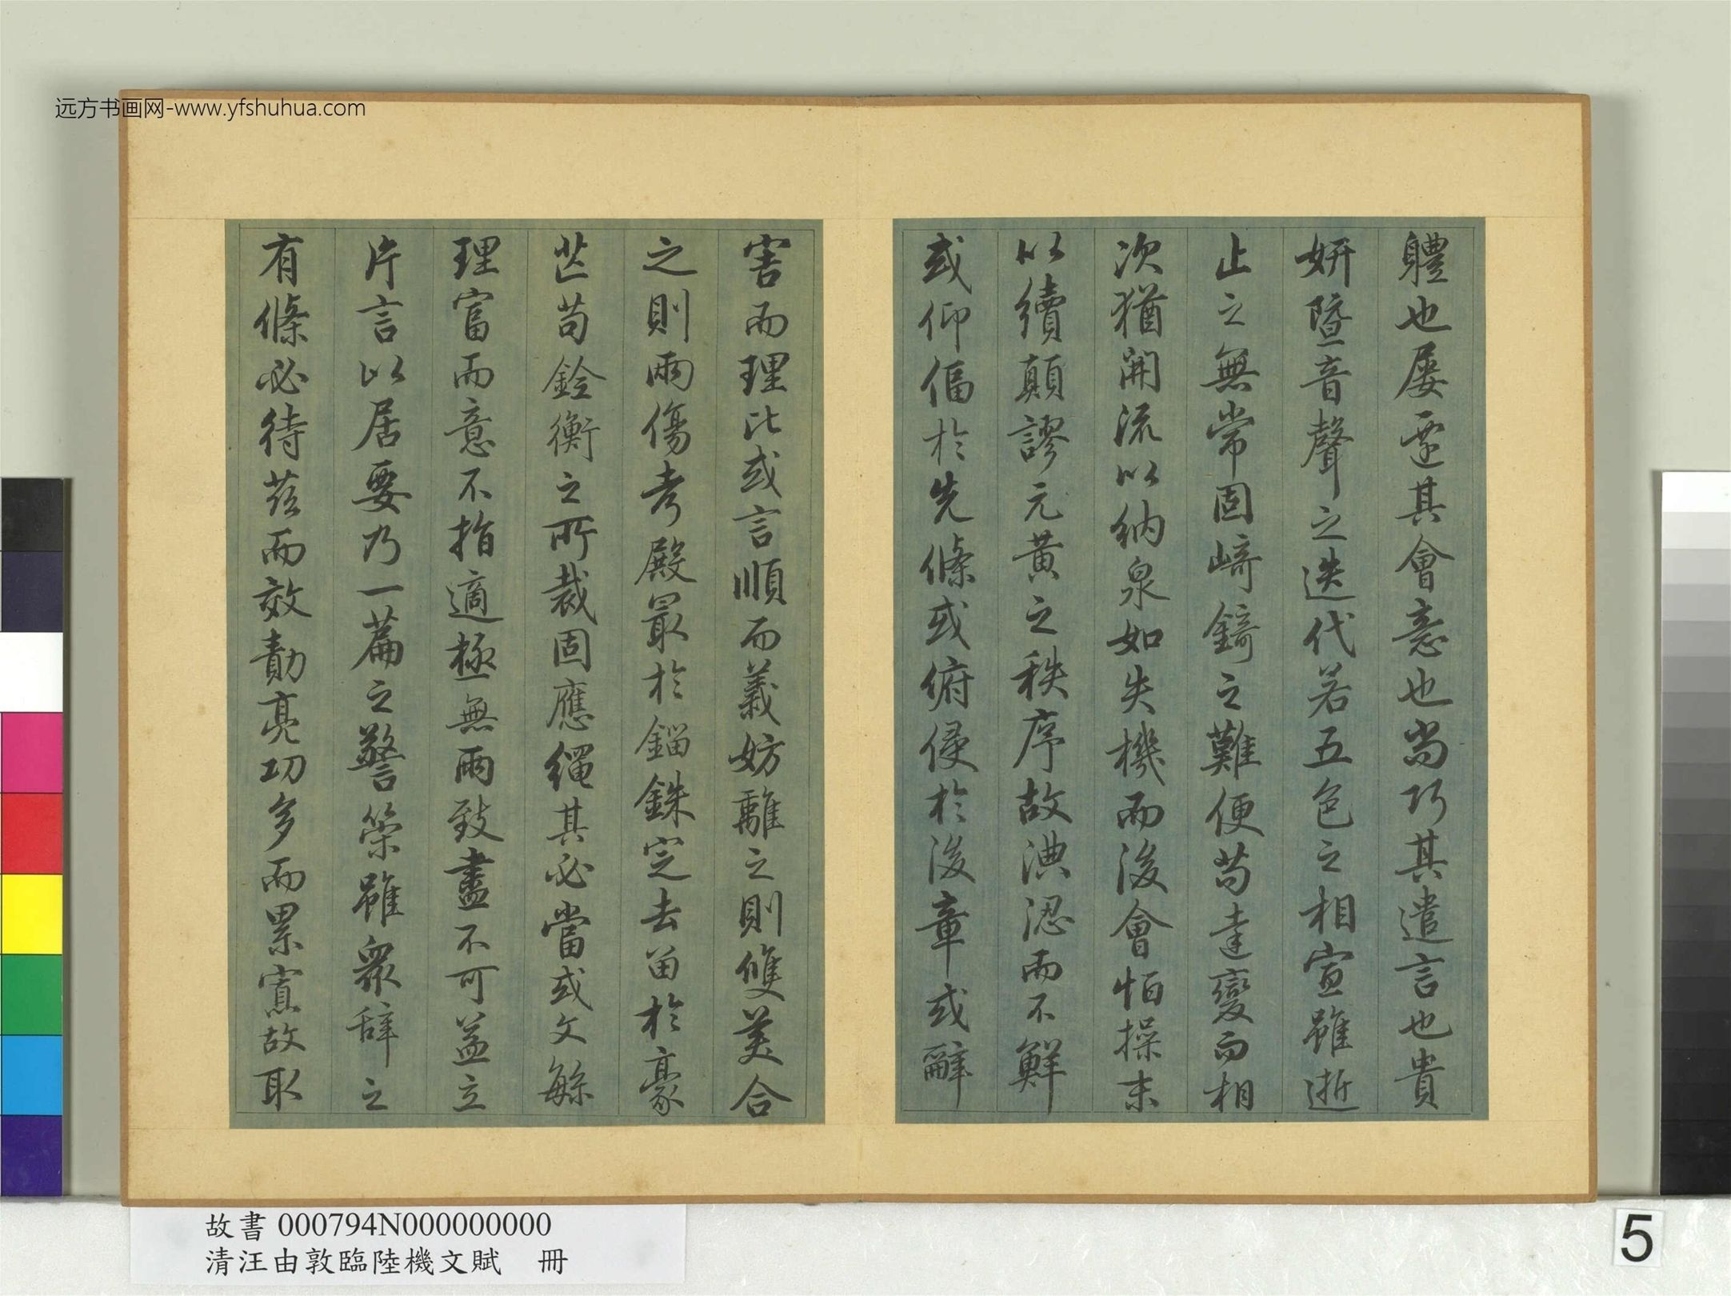 远方书画网-www.yfshuhua.com
體也屢遷其會意也尚巧其遣言也貴
妍暨音聲之迭代若五色之相宣雖逝
止之無常固崎錡之難便苟達變而相
次猶開流以納泉如失機而後會怕操末
以續顛謬元黃之秩序故淟涊而不鮮
或仰偪於先條或俯侵於後章或辭
害而理比或言順而義妨離之則雙美合
之則兩傷考殿最於錙銖定去留於豪
芒苟銓衡之所裁固應繩其必當或文繁
理富而意不指適極無兩致盡不可益立
片言以居要乃一篇之警策雖眾辭之
有條必待茲而效勣亮功多而累寡故取
故書 000794N000000000
清汪由敦臨陸機文賦 冊
5